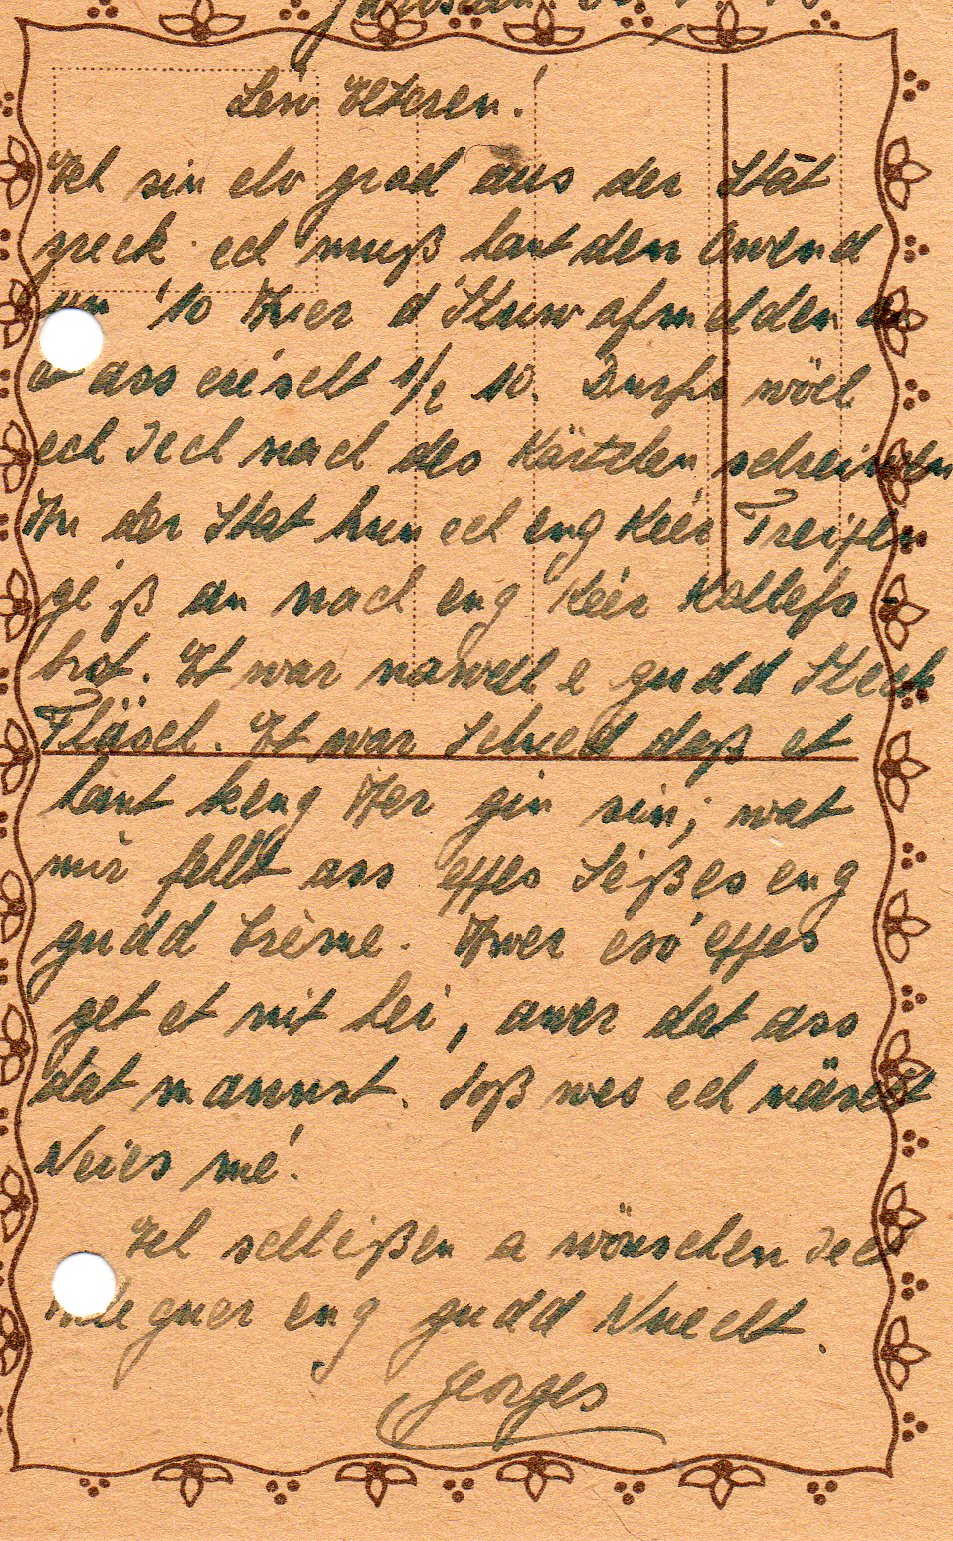 Léw Elteren!
Ech sin elo grad aus der Stât
zreck ech muß haut den Owend
um 10 Auer d'Stuw afmelden an
et ass eréischt 1/2 10. Durfir wöll
ech Iech nach des Kärtchen schreiwen
An der Stat hun ech eng Kéer Treipen
giéß an nach eng Kéer Kallefs-
brot. Et war nawell e gudd Steck
Fläsch. Et war Schued daß et
haut keng Äer gin sin; wat
mir fehlt ass eppes Séißes eng
gudd Crème. Awer esó eppes
get et nit hei, awer dat ass
dat mannst. Soß wes ech näischt
Neies mé.
Ech schléißen a wönschen Iech
eng gudd Nuecht.
Georges